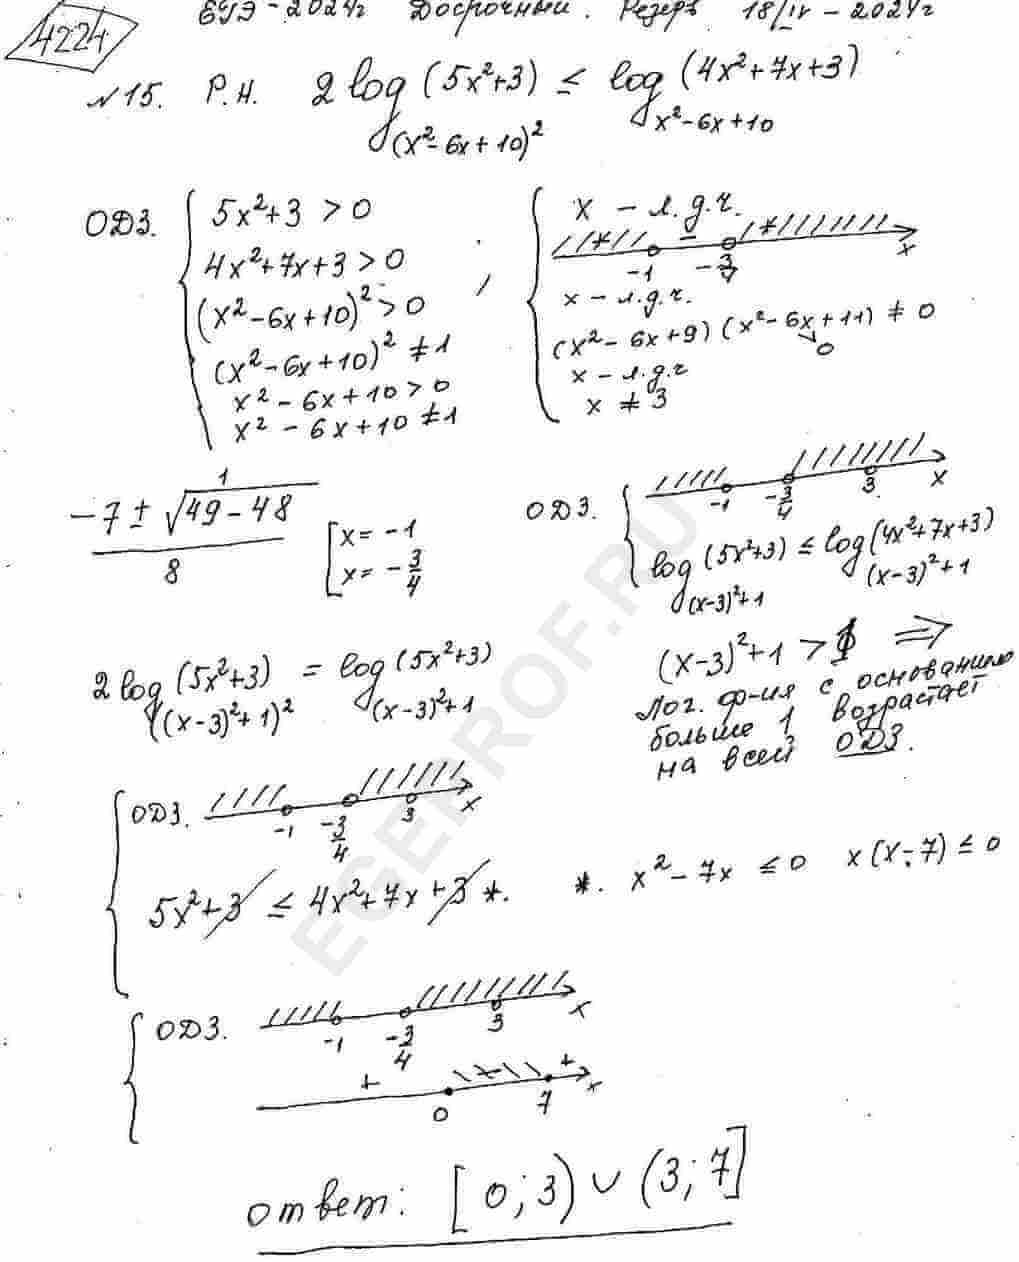 4224 ЕГЭ-2024г Досрочный. Резерв 18/IV-2024г
№15. Р.Н. 2log_{(x²-6x+10)²}(5x²+3) ≤ log_{x²-6x+10}(4x²+7x+3)
ОДЗ. { 5x²+3 > 0
4x²+7x+3 > 0
(x²-6x+10)² > 0
(x²-6x+10)² ≠ 1
x²-6x+10 > 0
x²-6x+10 ≠ 1
, { x - л.д.ч.
+ - +
-1 -3/4 x
x - л.д.ч.
(x²-6x+9)(x²-6x+11) ≠ 0
>0
x - л.д.ч
x ≠ 3
(-7 ± √(49-48))/8
1
[ x = -1
x = -3/4
ОДЗ. { -1 -3/4 3 x
log_{(x-3)²+1}(5x²+3) ≤ log_{(x-3)²+1}(4x²+7x+3)
2log_{((x-3)²+1)²}(5x²+3) = log_{(x-3)²+1}(5x²+3)
(x-3)²+1 > 1 ⇒
Лог. ф-ия с основанием
больше 1 возрастает
на всей ОДЗ.
{ ОДЗ. -1 -3/4 3 x
5x²+3 ≤ 4x²+7x+3 *.
*. x²-7x ≤ 0 x(x-7) ≤ 0
{ ОДЗ. -1 -3/4 3 x
+ - +
0 7 x
ответ: [0;3) ∪ (3;7]
EGEPROF.RU